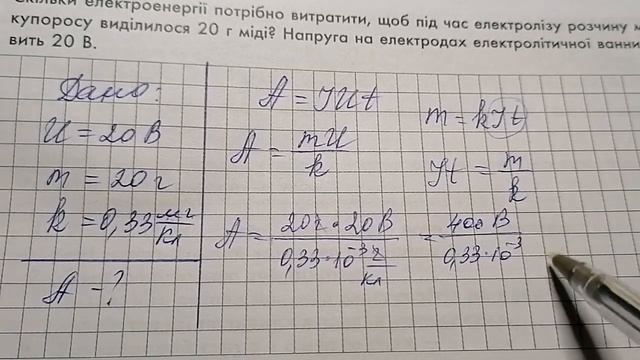 електроенергії потрібно витратити, щоб під час електролізу розчину
купоросу виділилося 20 г міді? Напруга на електродах електролітичної ванни
вить 20 В.
Дано:
U = 20 В
m = 20 г
k = 0,33 мг/Кл
A - ?
A = IUt
A = mU/k
m = kIt
It = m/k
A = 20г · 20В / 0,33·10⁻³ г/Кл = 400 В / 0,33·10⁻³